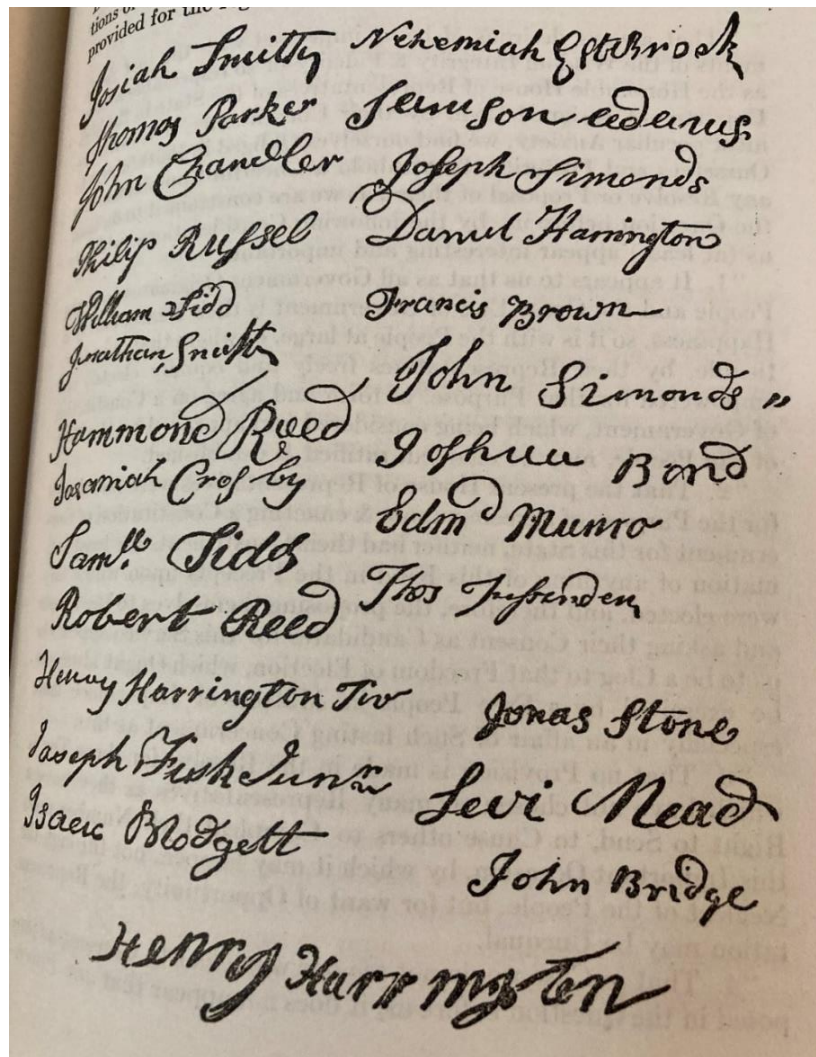 tions of
provided for the
Josiah Smith
Thomas Parker
John Chandler
Philip Russel
William Tidd
Jonathan Smith
Hammond Reed
Jeremiah Crosby
Samll. Tidd
Robert Reed
Henry Harrington Jur
Joseph Fisk Junr
Isaac Blodgett
Nehemiah Estabrook
Adams
Joseph Simonds
Daniel Harrington
Francis Brown
John Simonds
Joshua Bond
Edmd Munro
Thos Fessenden
Jonas Stone
Levi Mead
John Bridge
Henry Harrington